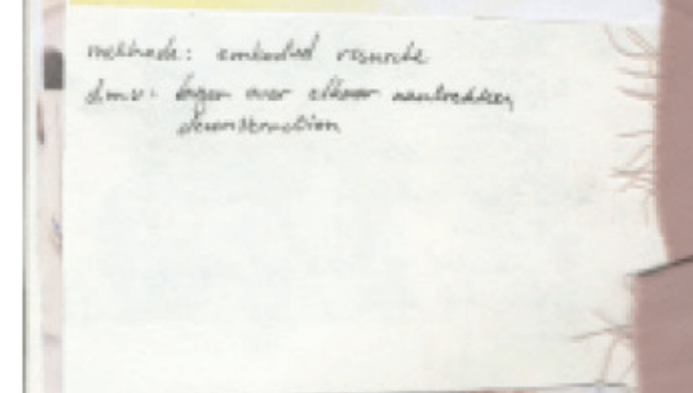 methode: embodied research
d.m.v. lagen over elkaar aantrekken,
deconstruction